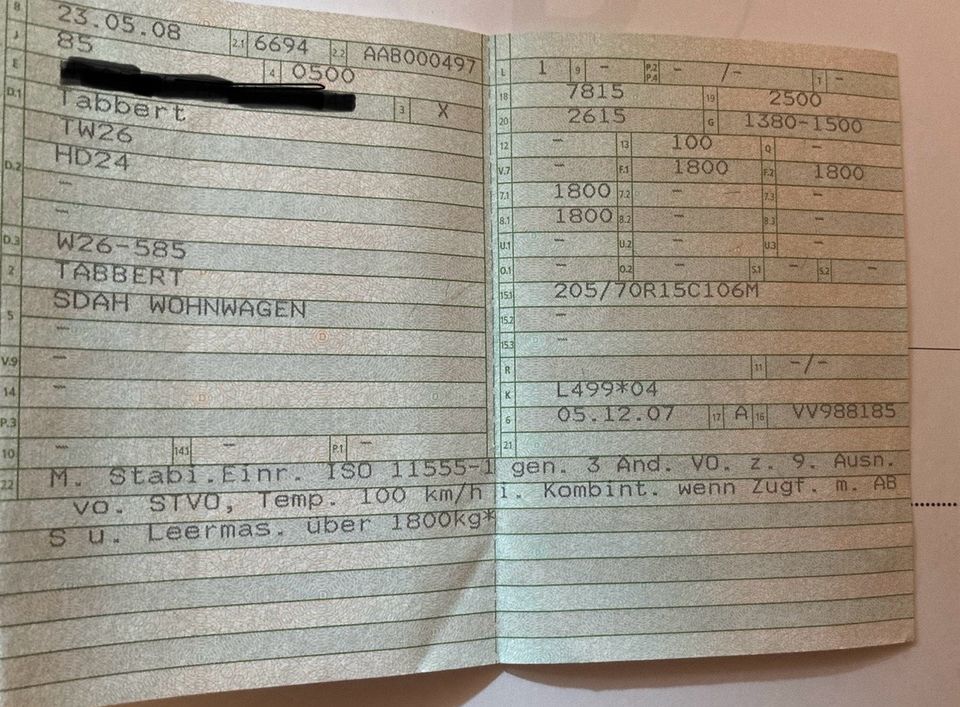 B 23.05.08 2.1 6694 2.2 AAB000497
J 85 4 0500
E 3 X
D.1 Tabbert
TW26
D.2 HD24
–
–
D.3 W26-585
2 TABBERT
5 SDAH WOHNWAGEN
–
V.9 –
14 –
P.3
10 – 14.1 – P.1 –
L 1 9 – P.2 P.4 – /– T –
18 7815 19 2500
20 2615 G 1380-1500
12 – 13 100 Q –
V.7 – F.1 1800 F.2 1800
7.1 1800 7.2 – 7.3 –
8.1 1800 8.2 – 8.3 –
U.1 – U.2 – U.3 –
O.1 – O.2 – S.1 – S.2 –
15.1 205/70R15C106M
15.2 –
15.3 –
R 11 –/–
K L499*04
6 05.12.07 17 A 16 VV988185
21
22 M. Stabi.Einr. ISO 11555-1 gen. 3 And. VO. z. 9. Ausn.
vo. STVO, Temp. 100 km/h i. Kombint. wenn Zugf. m. AB
S u. Leermas. über 1800kg*